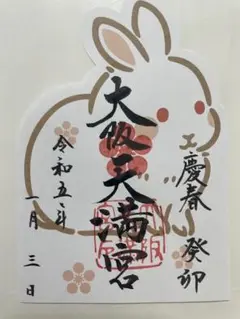 慶春 癸卯
大阪天満宮
令和五年
一月三日